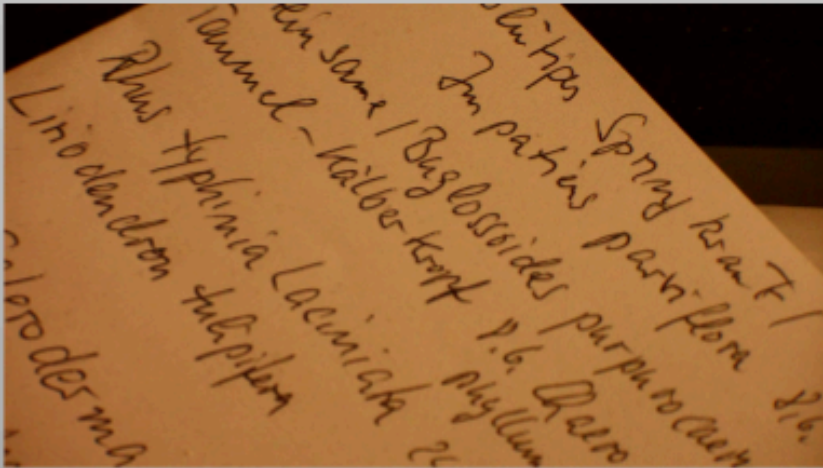 blütiges Springkraut /
Impatiens parviflora 8.6.
einsame / Buglossoides purpurocaeru
Taumel-Kälberkropf 8.6. Chaero
phyllum
Rhus typhinia Laciniata
Liriodendron tulipifera
loroderma